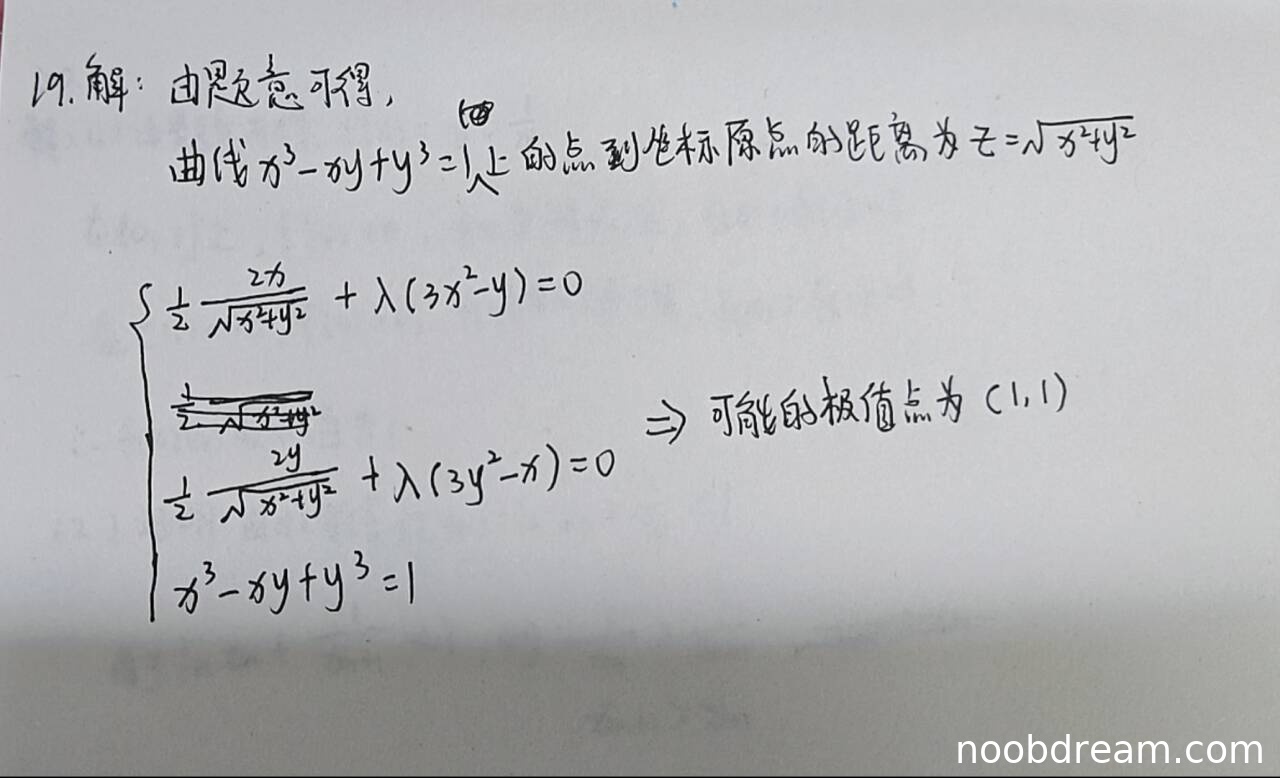 19.解：由题意可得，
曲线 x³-xy+y³=1上的点到坐标原点的距离为 z=√(x²+y²)
½ 2x/√(x²+y²) + λ(3x²-y)=0
½ 2y/√(x²+y²) + λ(3y²-x)=0
⇒ 可能的极值点为 (1,1)
x³-xy+y³=1
noobdream.com